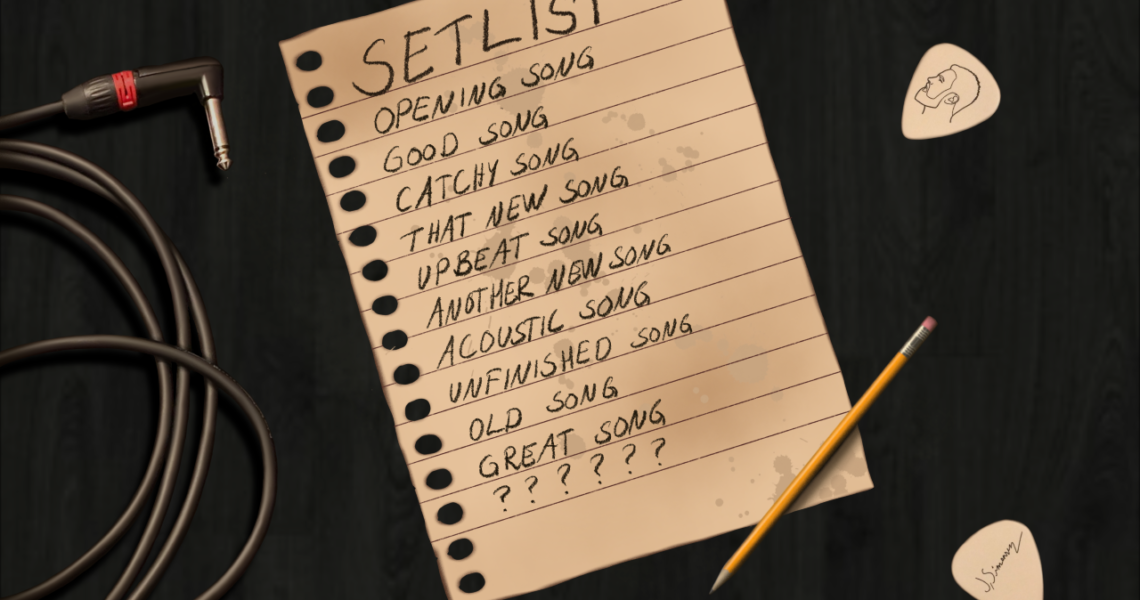 SETLIST
OPENING SONG
GOOD SONG
CATCHY SONG
THAT NEW SONG
UPBEAT SONG
ANOTHER NEW SONG
ACOUSTIC SONG
UNFINISHED SONG
OLD SONG
GREAT SONG
? ? ? ? ? ?